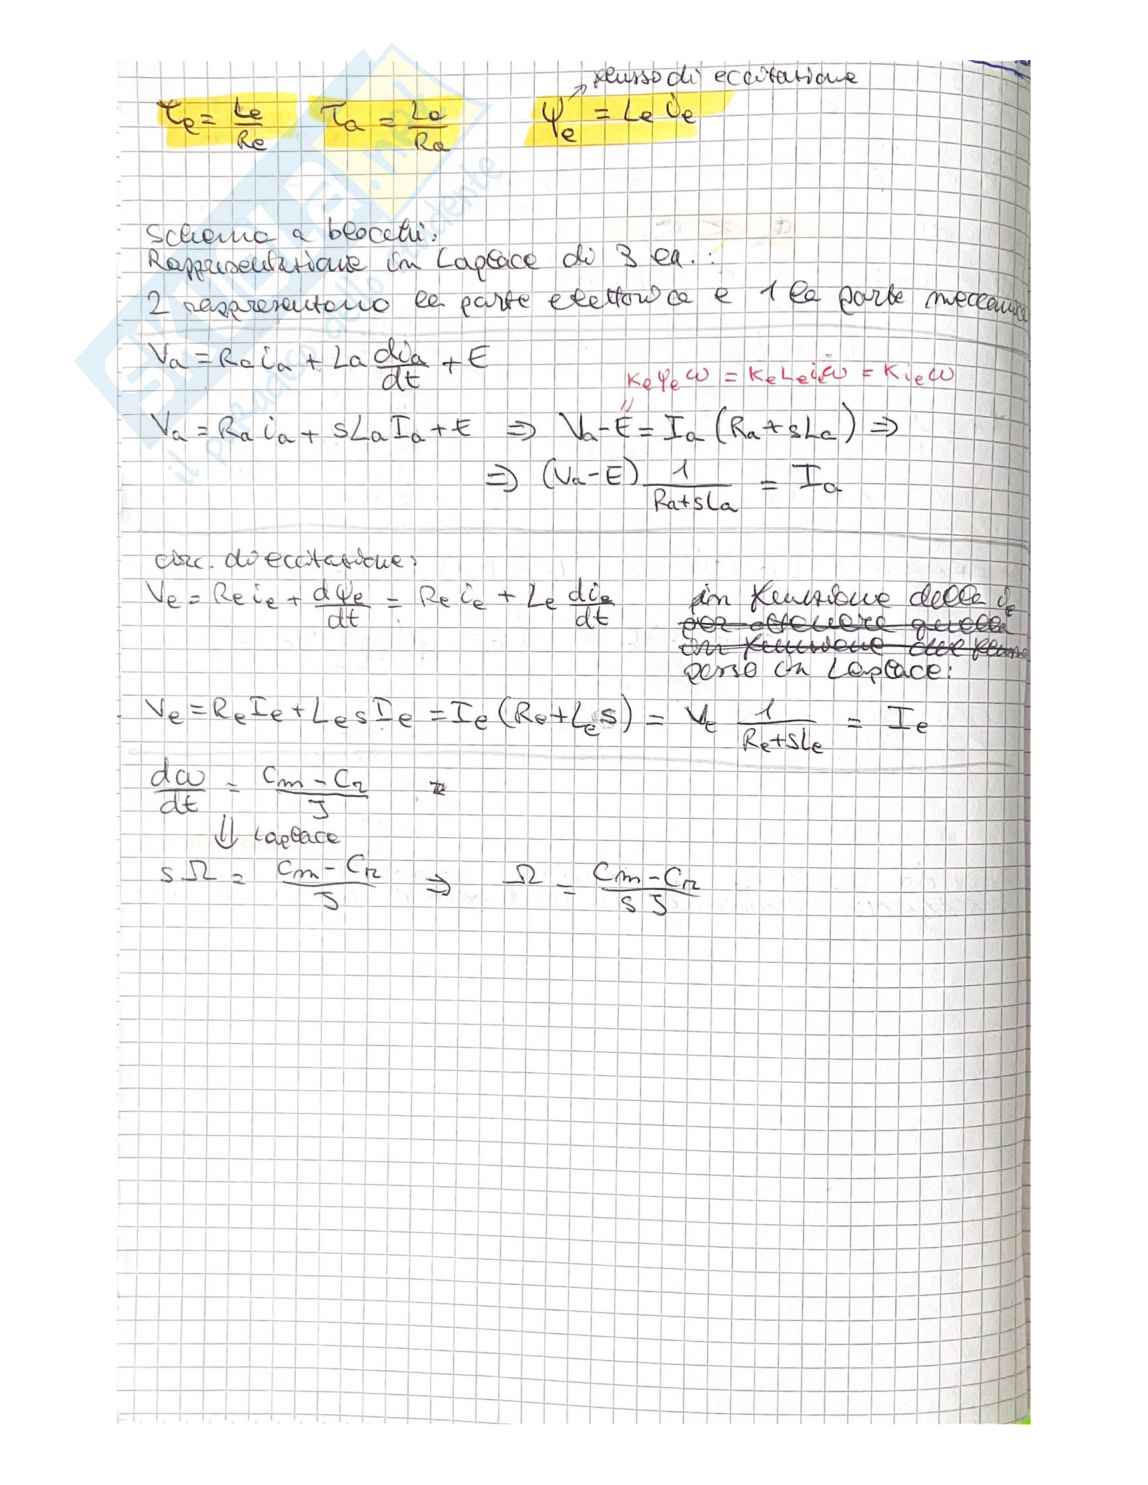 flusso di eccitazione
τe = Le/Re   τa = La/Ra   ψe = Le ie
Schema a blocchi:
Rappresentazione in Laplace di 3 eq.:
2 rappresentano la parte elettrica e 1 la parte meccanica
Va = Ra ia + La dia/dt + E
Ke φe ω = Ke Le ie ω = K ie ω
Va = Ra ia + sLa Ia + E ⇒ Va - E = Ia (Ra + sLa) ⇒
⇒ (Va - E) 1/(Ra + sLa) = Ia
circ. di eccitazione:
Ve = Re ie + dψe/dt = Re ie + Le die/dt   in funzione della ie
passo in Laplace:
Ve = Re Ie + Le s Ie = Ie (Re + Le s) = Ve 1/(Re + sLe) = Ie
dω/dt = (Cm - Cr)/J
⇓ Laplace
sΩ = (Cm - Cr)/J ⇒ Ω = (Cm - Cr)/(s J)